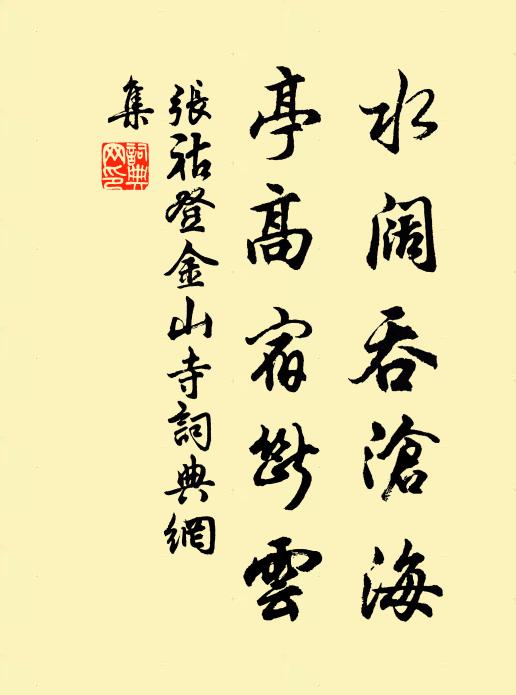 水阔吞滄海
亭高宿斷雲
張祜登金山寺詞典網
集
詞典網印